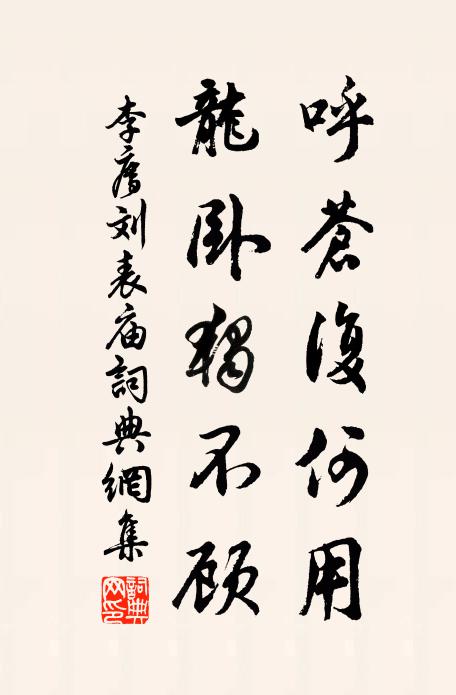 呼蒼復何用
龍卧獨不顾
李廌刘表庙詞典網集
詞典網印